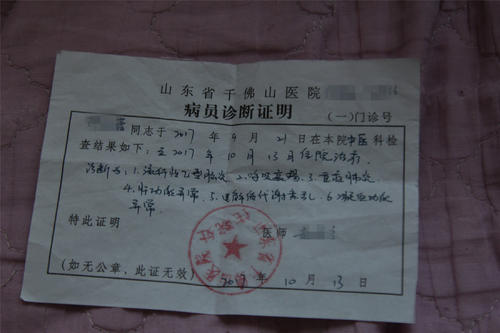 山东省千佛山医院
病员诊断证明 (一)门诊号
同志于2017年9月21日在本院中医科检
查结果如下:至2017年10月13日住院治疗
诊断为:1.流行性乙型脑炎 2.呼吸衰竭 3.重症肺炎
4.肝功能异常 5.电解质代谢紊乱 6.凝血功能
异常
特此证明 医师
(如无公章,此证无效) 2017年10月13日